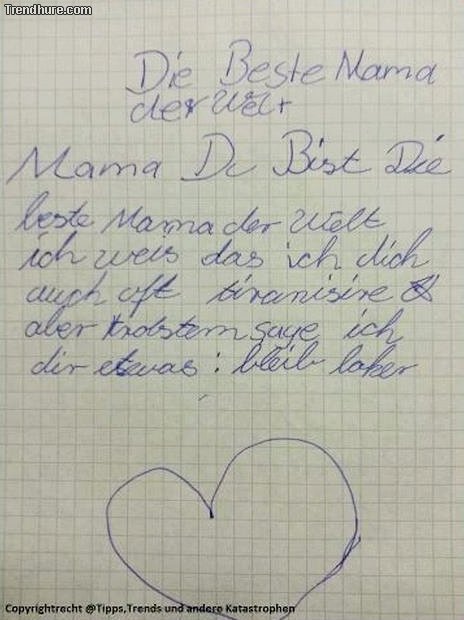 Trendhure.com
Die Beste Mama
der Welt
Mama Du Bist Die
beste Mama der Welt
ich weis das ich dich
auch oft tiranisire
aber trotstem sage ich
dir etwas: bleib loker
Copyrightrecht @Tipps,Trends und andere Katastrophen